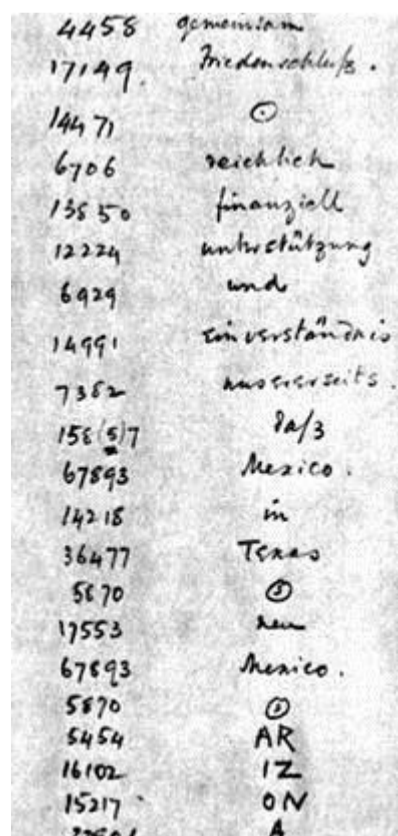 4458 gemeinsam
17149. Friedenschluß.
14471 ⊙
6706 reichlich
13850 finanziell
12224 unterstützung
6929 und
14991 einverständnis
7382 unsererseits.
158(5)7 daß
67893 Mexico.
14218 in
36477 Texas
5870
17553 neu
67893 Mexico.
5870
5454 AR
16102 IZ
15217 ON
A